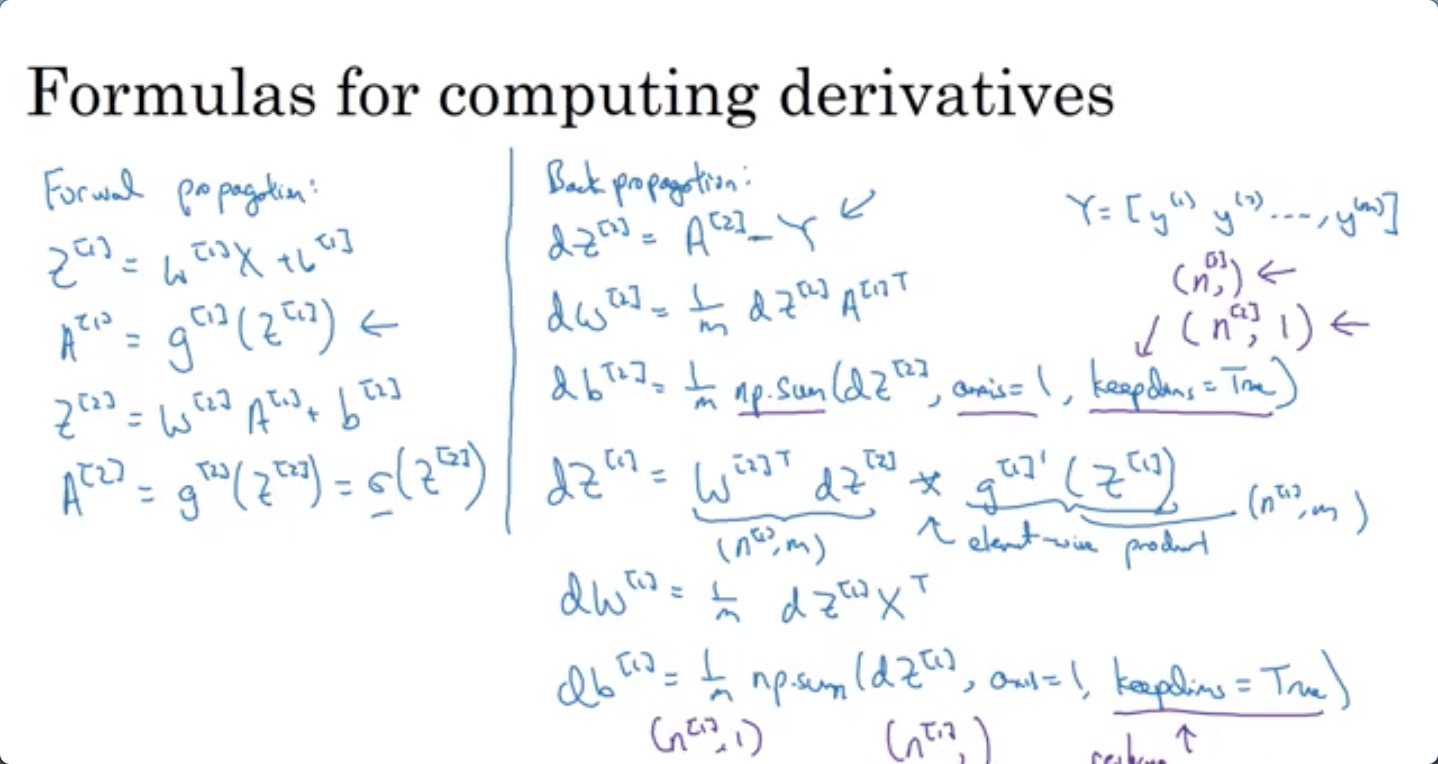 Formulas for computing derivatives
Forward propagation:
Z^[1] = W^[1]X + b^[1]
A^[1] = g^[1](Z^[1]) ←
Z^[2] = W^[2] A^[1] + b^[2]
A^[2] = g^[2](Z^[2]) = σ(Z^[2])
Back propagation:
dZ^[2] = A^[2] - Y ↙
dW^[2] = 1/m dZ^[2] A^[1]T
db^[2] = 1/m np.sum(dZ^[2], axis=1, keepdims=True)
dZ^[1] = W^[2]T dZ^[2] * g^[1]'(Z^[1])
(n^[1], m) ↖ element-wise product (n^[1], m)
dW^[1] = 1/m dZ^[1] X^T
db^[1] = 1/m np.sum(dZ^[1], axis=1, keepdims=True)
(n^[1], 1) (n^[1],) ↑
Y = [y^(1) y^(2) ...., y^(m)]
(n^[2],) ←
↙ (n^[2], 1) ←